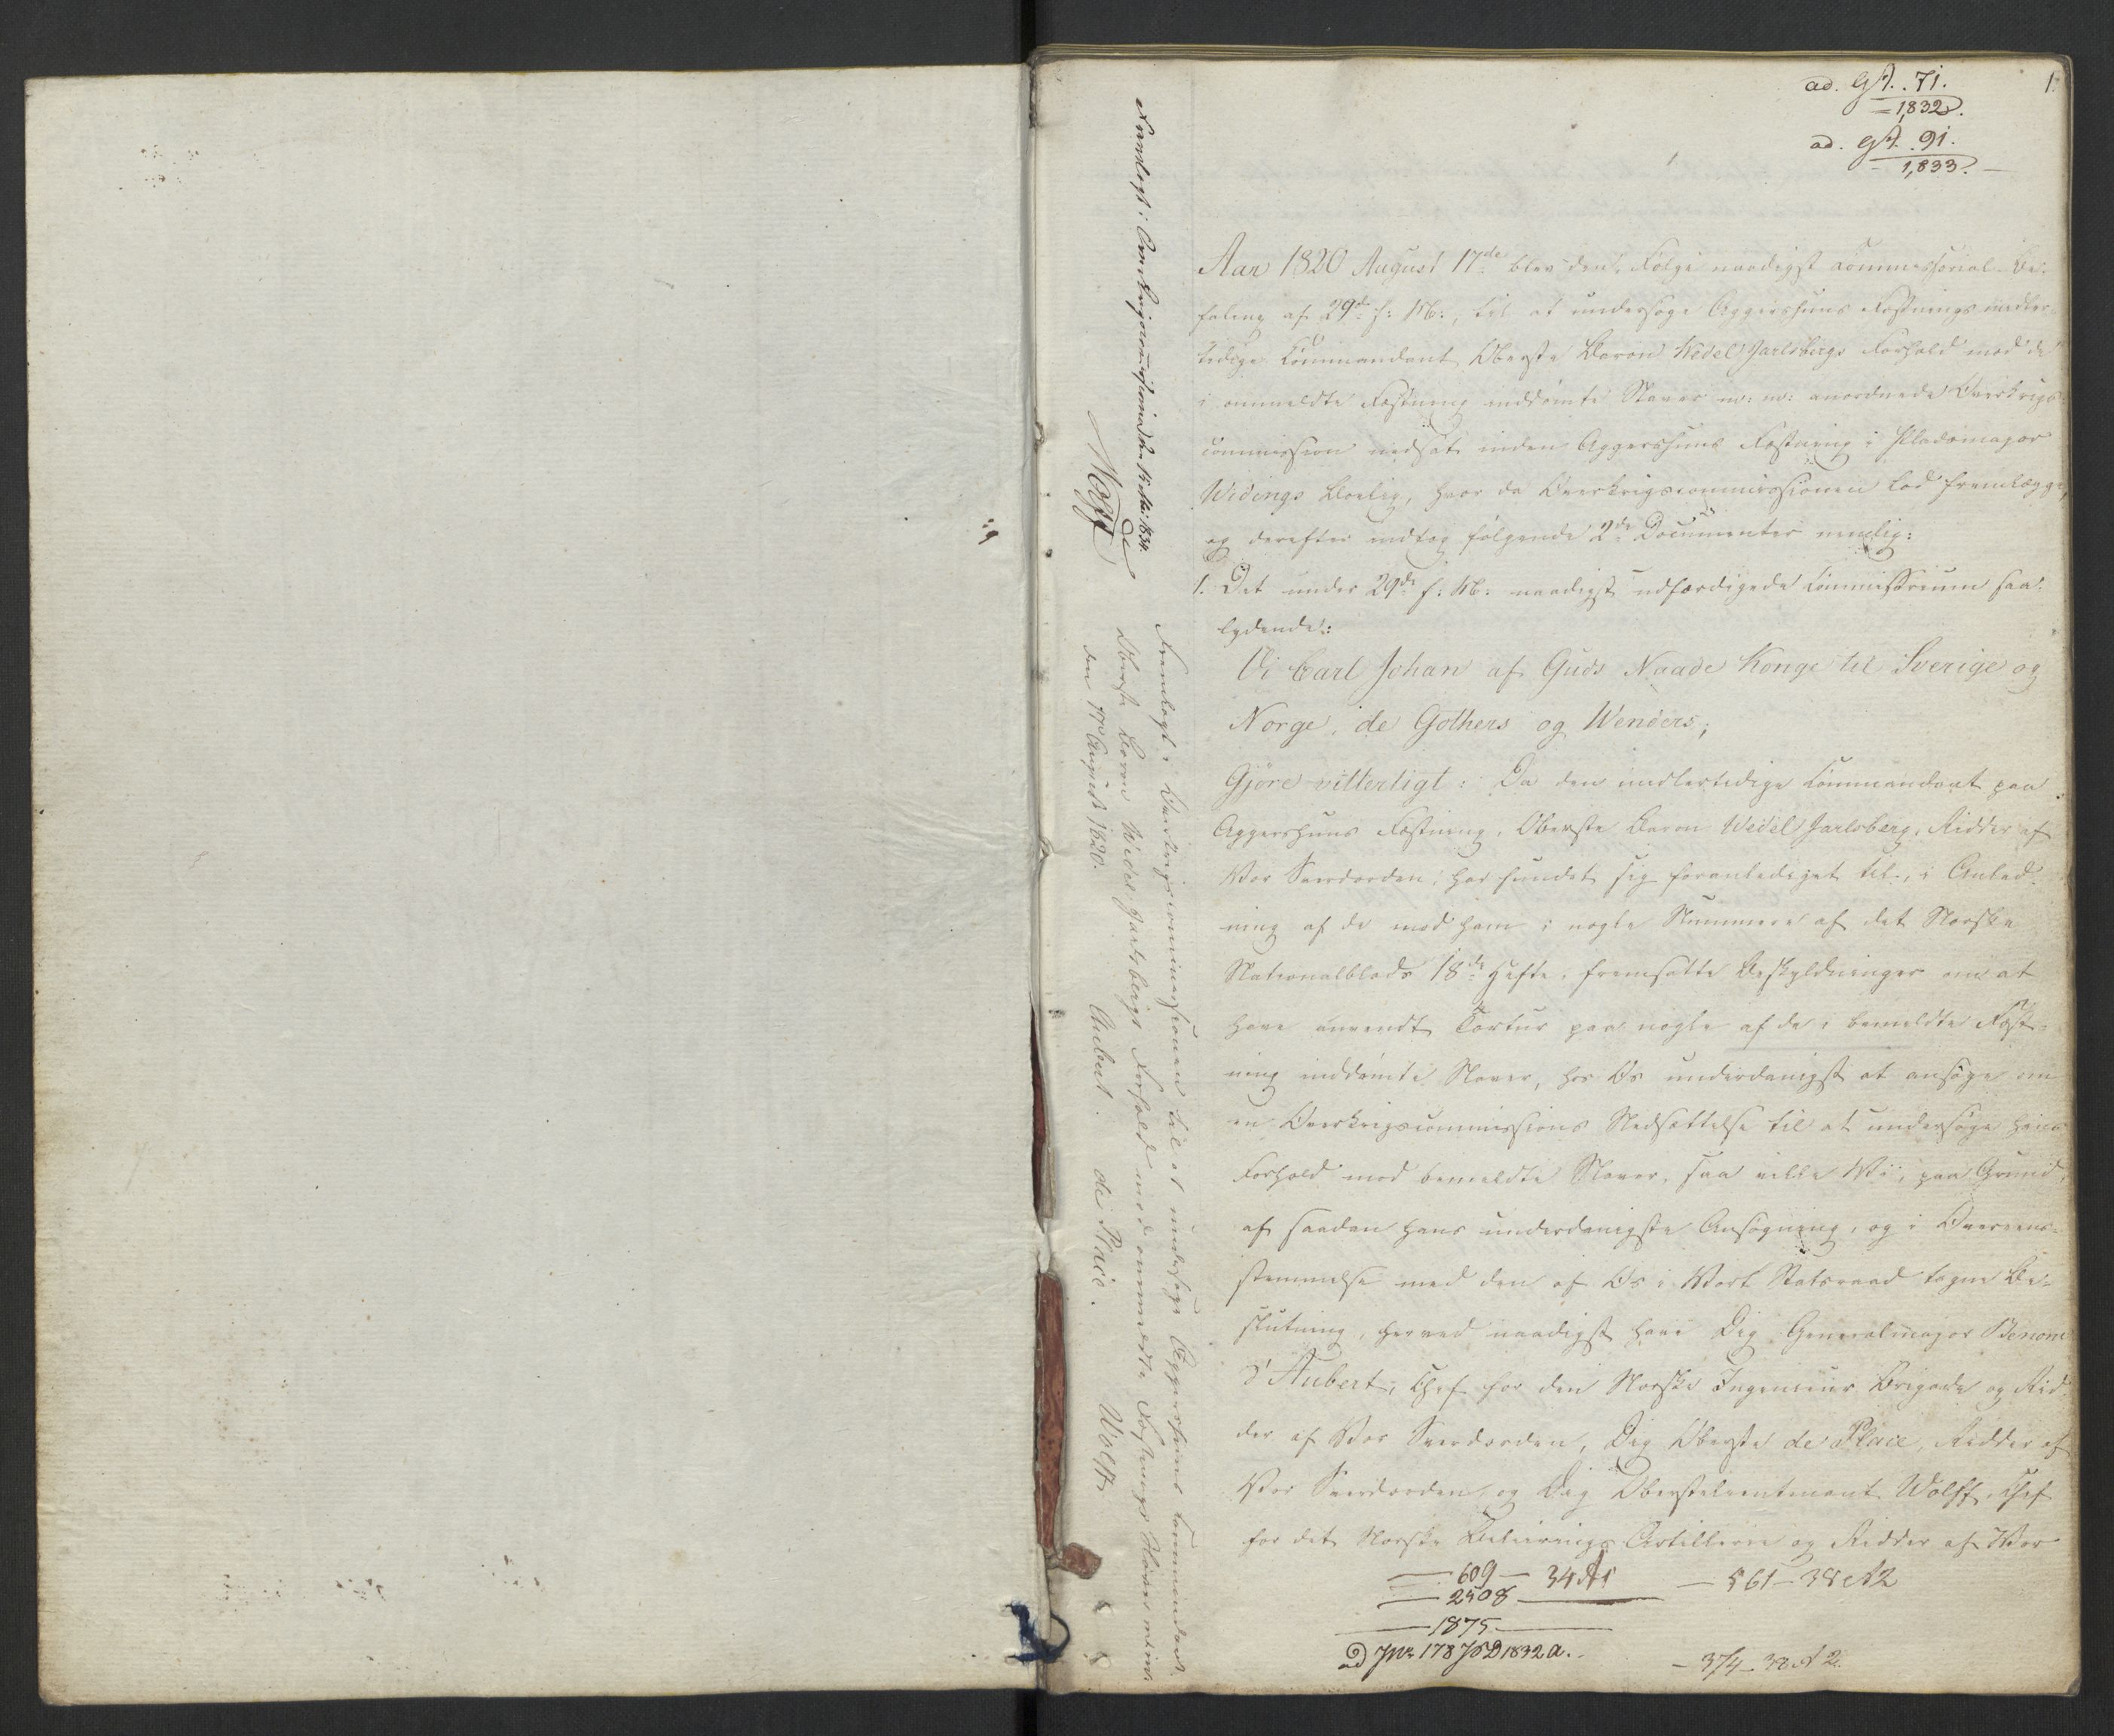 1.
ad. GA. 71.
1832.
ad. GA. 91.
1,833.
Aar 1820 August 17de blev den i Følge naadigst Commissorial-Be-
faling af 29de f: M:, til at undersøge Aggershuus Fæstnings midler-
tidige Commandant Oberste Baron Wedel Jarlsbergs Forhold mod de
i ommeldte Fæstning inddømte Slaver m: m: anordnede Overkrigs-
commission nedsat inden Aggershuus Fæstning i Pladsmajor
Widings Bolig, hvor da Overkrigscommissionen lod fremlægge,
og derefter indtog følgende 2de Documenter nemlig:
1. Det under 29de f: M: naadigst udfærdigede Commissorium saa-
lydende:
Vi Carl Johan af Guds Naade Konge til Sverige og
Norge, de Gothers og Wenders,
Gjøre vitterligt: Da den midlertidige Commandant paa
Aggershuus Fæstning, Oberste Baron Wedel Jarlsberg, Ridder af
Vor Sværdorden, har fundet sig foranlediget til, i Anled-
ning af de mod ham i nogle Nummere af det Norske
Nationalblads 18de Hefte, fremsatte Beskyldninger om at
have anvendt Tortur paa nogle af de i bemeldte Fæst-
ning inddømte Slaver, hos Os underdanigst at ansøge om
en Overkrigscommissions Nedsættelse til at undersøge hans
Forhold mod bemeldte Slaver, saa ville Vi, paa Grund
af saadan hans underdanigste Ansøgning, og i Overeens-
stemmelse med den af Os i Vort Statsraad tagne Be-
slutning, herved naadigst have Dig Generalmajor Benoni
d'Aubert, Chef for den Norske Ingenieur Brigade og Rid-
der af Vor Sværdorden, Dig Oberste de Place, Ridder af
Vor Sværdorden, og Dig Oberstelieutenant Wolff, Chef
for det Norske Artillerie og Ridder af Vor
609 — 34 A1
2508
1875
ad JNr 178 JPD 1832 a.
561 — 38 A2
374 — 32 A 2.
Fremlagt i Overkrigscommissionen den 15 Mai 1834.
Fremlagt i Overkrigscommissionen til at undersøge Aggershuus Commandant
Oberste Baron Wedel Jarlsbergs Forhold mod ommeldte Fæstnings Slaver
den 17de August 1820.
Aubert. de Place. Wolff